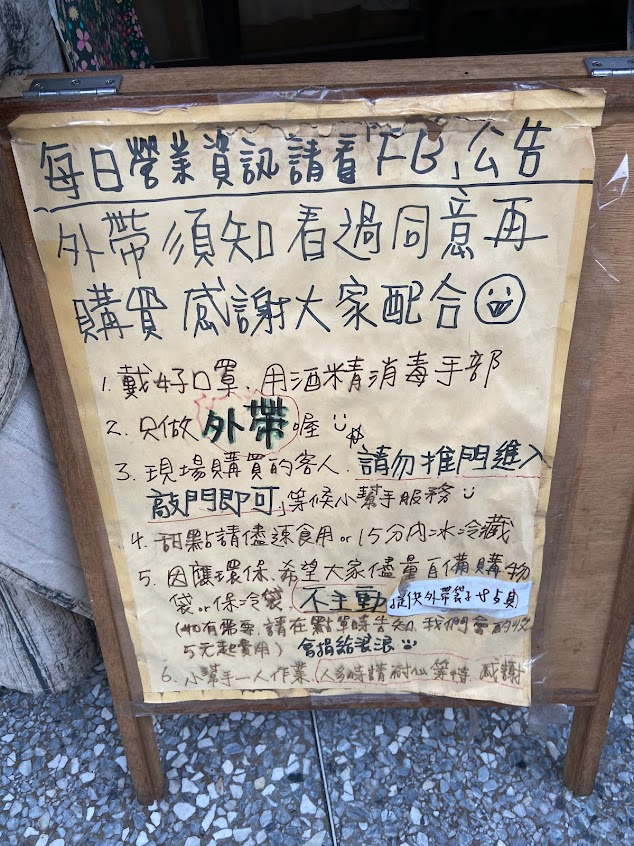 每日營業資訊請看「FB」公告
外帶須知 看過同意再
購買 感謝大家配合
1. 戴好口罩、用酒精消毒手部
2. 只做外帶喔
3. 現場購買的客人、請勿推門進入
敲門即可,等候小幫手服務
4. 甜點請儘速食用or 15分內冰冷藏
5. 因應環保、希望大家儘量自備購物
袋、or保冷袋、不主動提供外帶袋子
(如有需要、請在點單時告知、我們會酌收
5元起費用) 會捐給浪浪
6. 小幫手一人作業、人多時請耐心等待 感謝